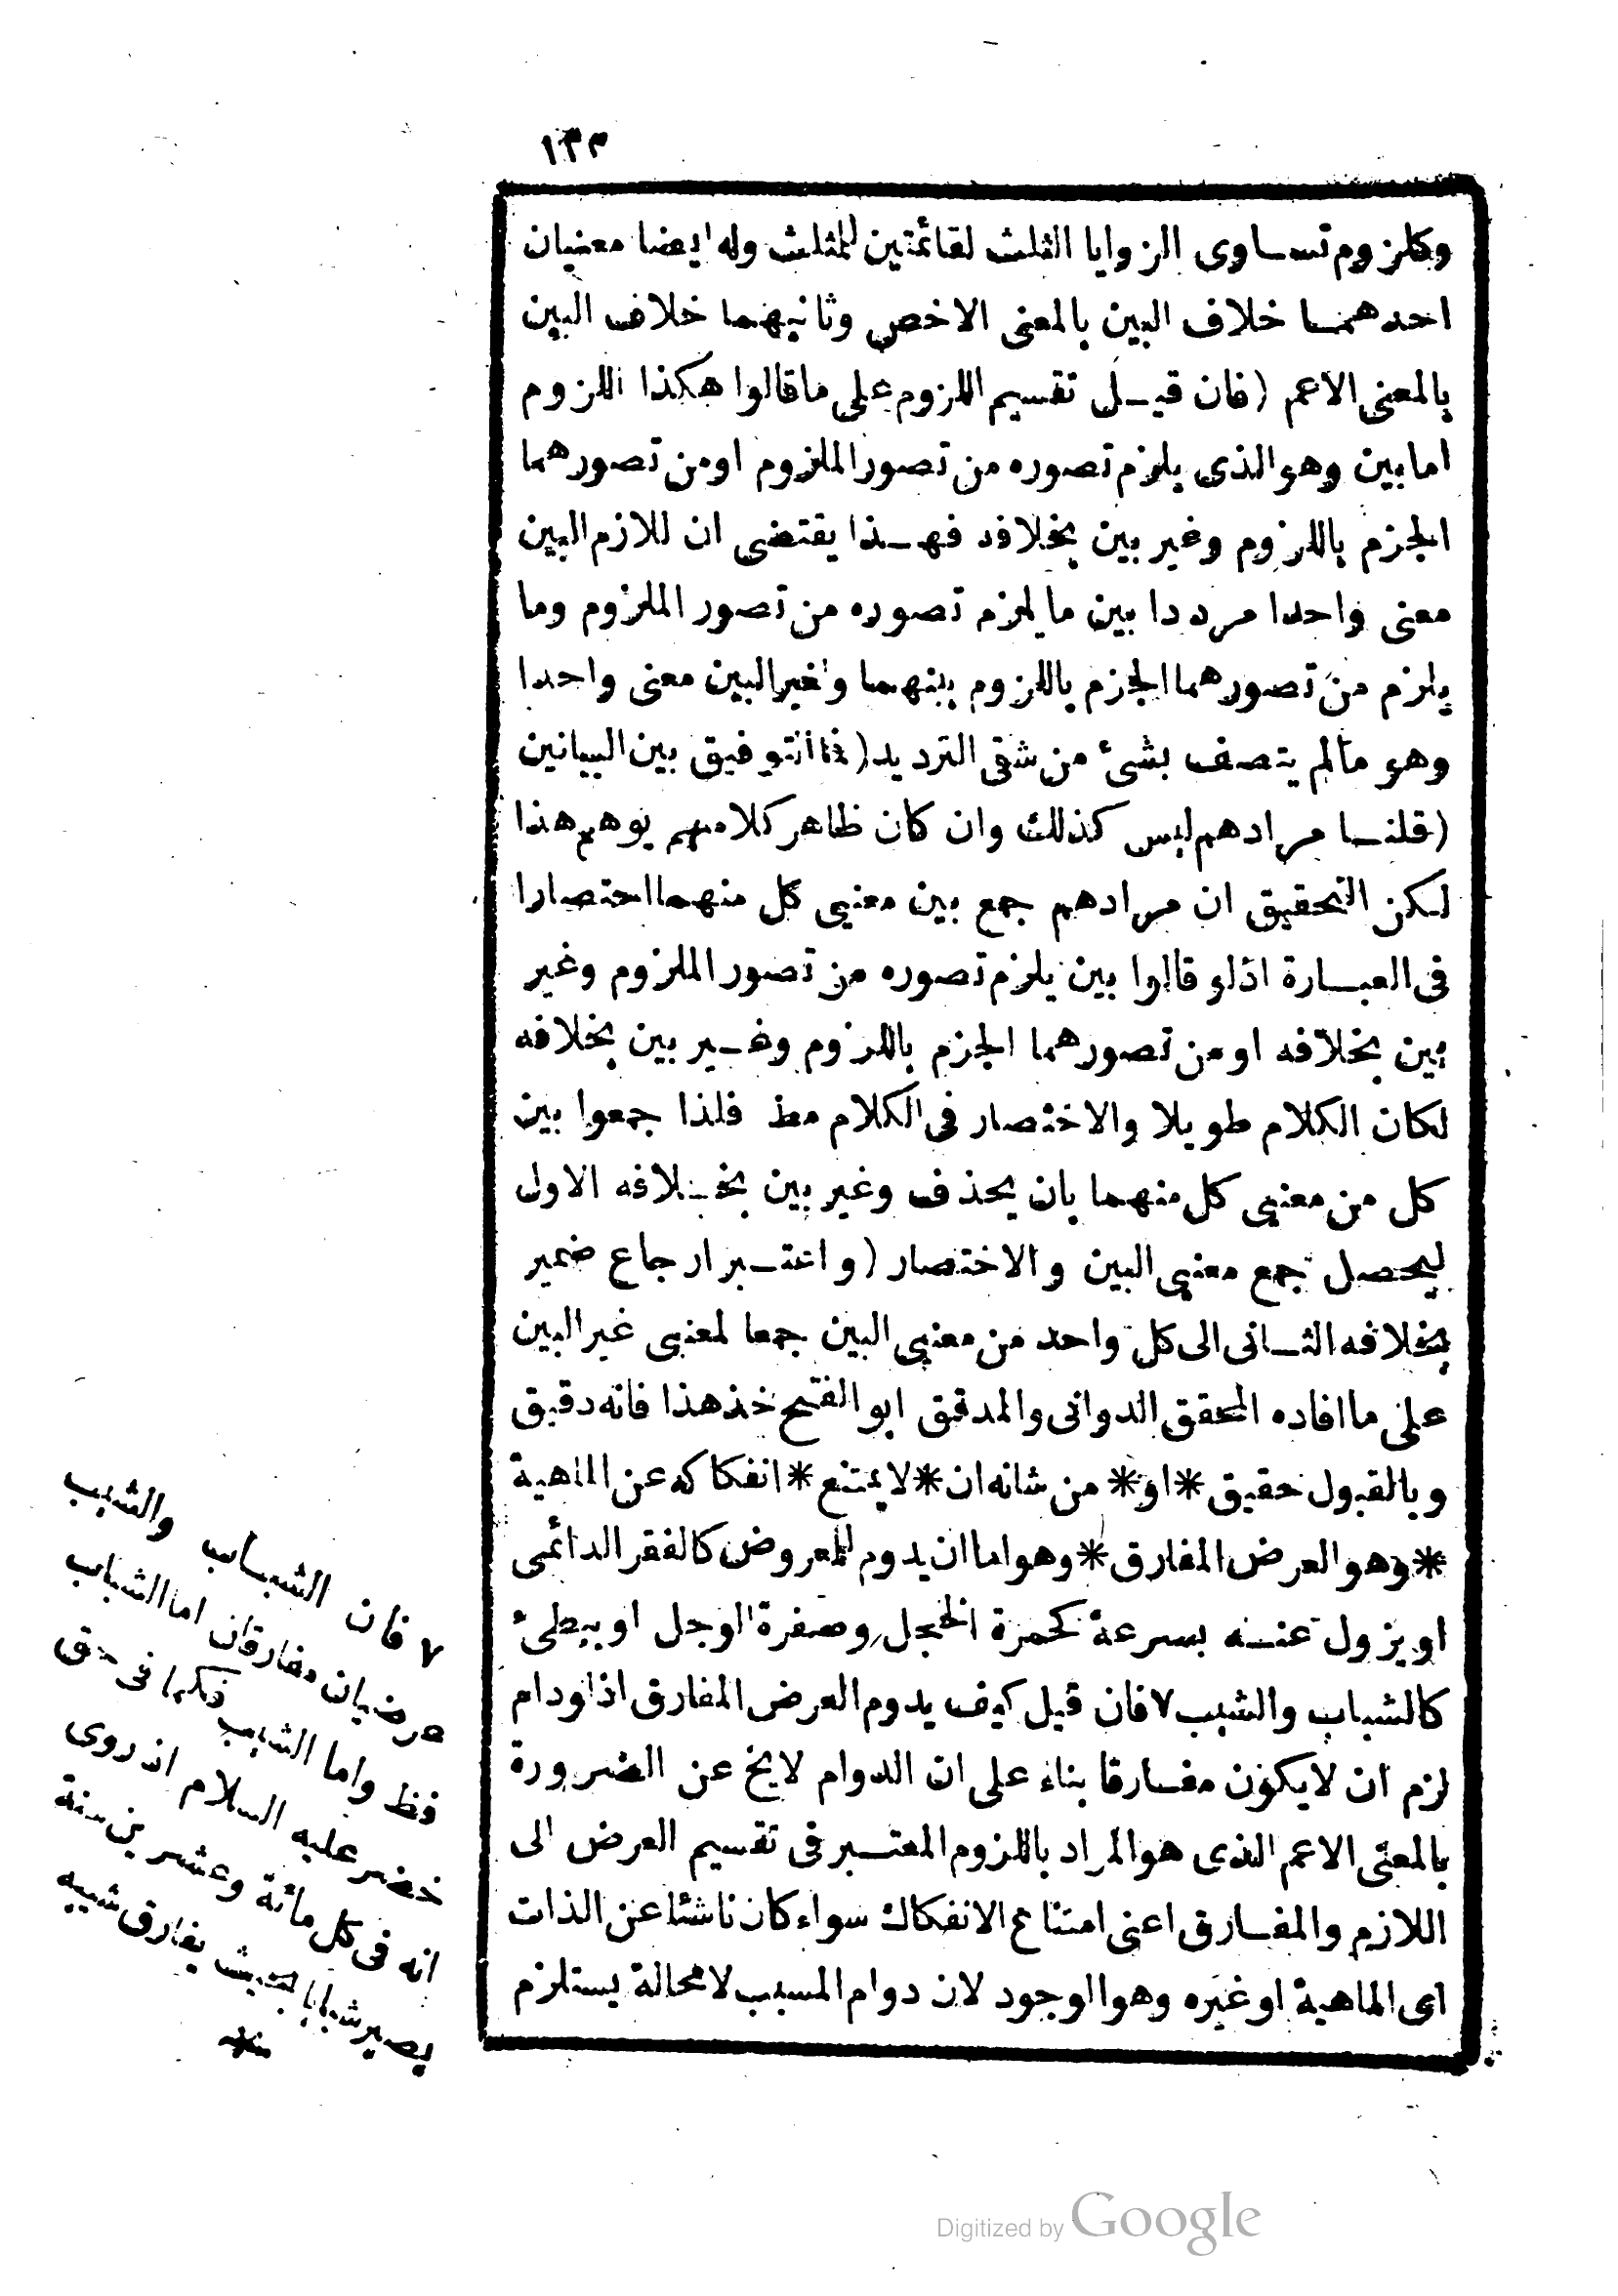 ١٣٣
وكلزوم تساوى الزوايا الثلث لقائمتين للمثلث وله ايضا معنيان
احدهما خلاف البين بالمعنى الاخص وثانيهما خلاف البين
بالمعنى الاعم (فان قيل تقسيم اللزوم على ما قالوا هكذا اللزوم
اما بين وهو الذى يلزم تصوره من تصور الملزوم او من تصورهما
الجزم باللزوم وغير بين بخلافه فهذا يقتضى ان للازم البين
معنى واحدا مرددا بين ما يلزم تصوره من تصور الملزوم وما
يلزم من تصورهما الجزم باللزوم بينهما ولغير البين معنى واحدا
وهو مالم يتصف بشئ من شقى الترديد (فما التوفيق بين البيانين
(قلنا مرادهم ليس كذلك وان كان ظاهر كلامهم يوهم هذا
لكن التحقيق ان مرادهم جمع بين معنيى كل منهما اختصارا
فى العبارة اذلو قالوا بين يلزم تصوره من تصور الملزوم وغير
بين بخلافه او من تصورهما الجزم باللزوم وغير بين بخلافه
لكان الكلام طويلا والاختصار فى الكلام مط فلذا جمعوا بين
كل من معنيى كل منهما بان يحذف وغير بين بخلافه الاول
ليحصل جمع معنيى البين والاختصار (واعتبر ارجاع ضمير
بخلافه الثانى الى كل واحد من معنيى البين جمعا لمعنيى غير البين
على ما افاده المحقق الدوانى والمدقق ابو الفتح خذ هذا فانه دقيق
وبالقبول حقيق * او * من شانه ان * لا يمتنع * انفكاكه عن الماهية
* وهو العرض المفارق * وهو اما ان يدوم للمعروض كالفقر الدائمى
او يزول عنه بسرعة كحمرة الخجل وصفرة الوجل او ببطئ
كالشباب والشيب ٧ فان قيل كيف يدوم العرض المفارق اذ لو دام
لزم ان لا يكون مفارقا بناء على ان الدوام لايخ عن الضرورة
بالمعنى الاعم الذى هو المراد باللزوم المعتبر فى تقسيم العرض الى
اللازم والمفارق اعنى امتناع الانفكاك سواء كان ناشئا عن الذات
اى الماهية او غيره وهو الوجود لان دوام المسبب لا محالة يستلزم
٧ فان الشباب والشيب
عرضيان مفارقان اما الشباب
فظ واما الشيب فكما فى حق
خضر عليه السلام اذ روى
انه فى كل مائة وعشرين سنة
يصير شابا بحيث يفارق شيبه
منه
Digitized by Google